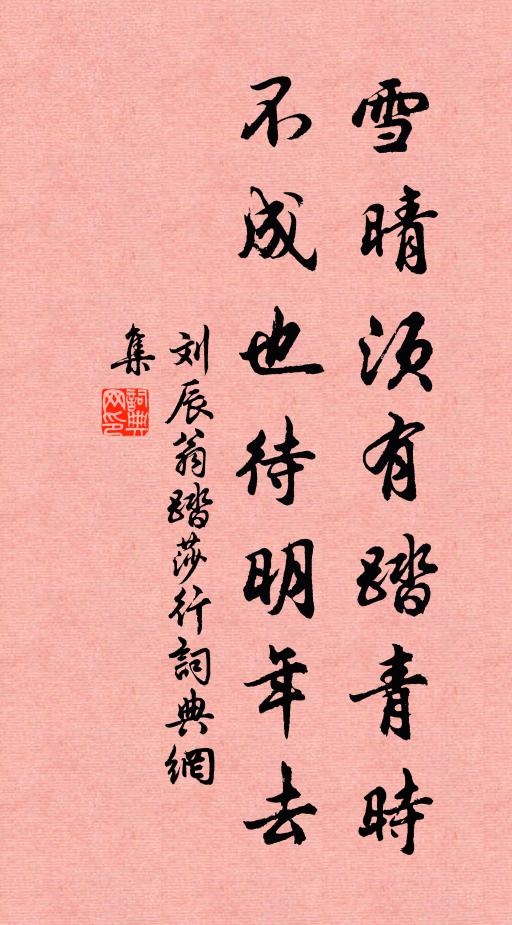 雪晴須有踏青時
不成也待明年去
刘辰翁踏莎行詞典網
集
詞典網印